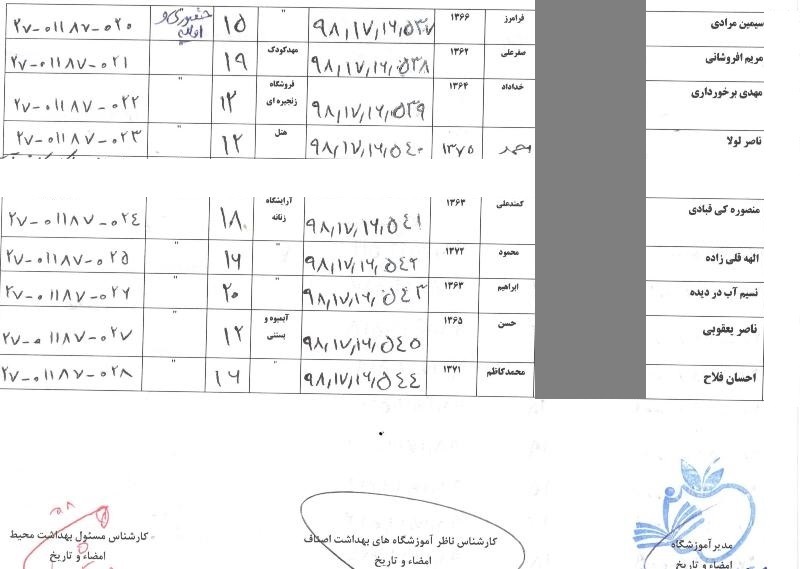 سیمین مرادی فرامرز ۱۳۶۶ ۹۸,۱۷,۱۶,۵۳۷ " ۱۵ حضوری و ۲۷-۰۱۱۸۷-۰۲۰
مریم افروشانی صفرعلی ۱۳۶۲ ۹۸,۱۷,۱۶,۵۳۸ مهدکودک ۱۹ " ۲۷-۰۱۱۸۷-۰۲۱
مهدی برخورداری خداداد ۱۳۶۴ ۹۸,۱۷,۱۶,۵۳۹ فروشگاه زنجیره ای ۱۲ " ۲۷-۰۱۱۸۷-۰۲۲
ناصر لولا ۱۳۷۵ ۹۸,۱۷,۱۶,۵۴۰ هتل ۱۲ " ۲۷-۰۱۱۸۷-۰۲۳
منصوره کی قبادی کمندعلی ۱۳۶۳ ۹۸,۱۷,۱۶,۵۴۱ آرایشگاه زنانه ۱۸ ۲۷-۰۱۱۸۷-۰۲۴
الهه قلی زاده محمود ۱۳۷۲ ۹۸,۱۷,۱۶,۵۴۲ " ۱۶ " ۲۷-۰۱۱۸۷-۰۲۵
نسیم آب در دیده ابراهیم ۱۳۶۳ ۹۸,۱۷,۱۶,۵۴۳ " ۲۰ " ۲۷-۰۱۱۸۷-۰۲۶
ناصر یعقوبی حسن ۱۳۶۵ ۹۸,۱۷,۱۶,۵۴۵ آبمیوه و بستنی ۱۲ " ۲۷-۰۱۱۸۷-۰۲۷
احسان فلاح محمدکاظم ۱۳۷۱ ۹۸,۱۷,۱۶,۵۴۴ " ۱۶ " ۲۷-۰۱۱۸۷-۰۲۸
مدیر آموزشگاه کارشناس ناظر آموزشگاه های بهداشت اصناف کارشناس مسئول بهداشت محیط
امضاء و تاریخ امضاء و تاریخ امضاء و تاریخ